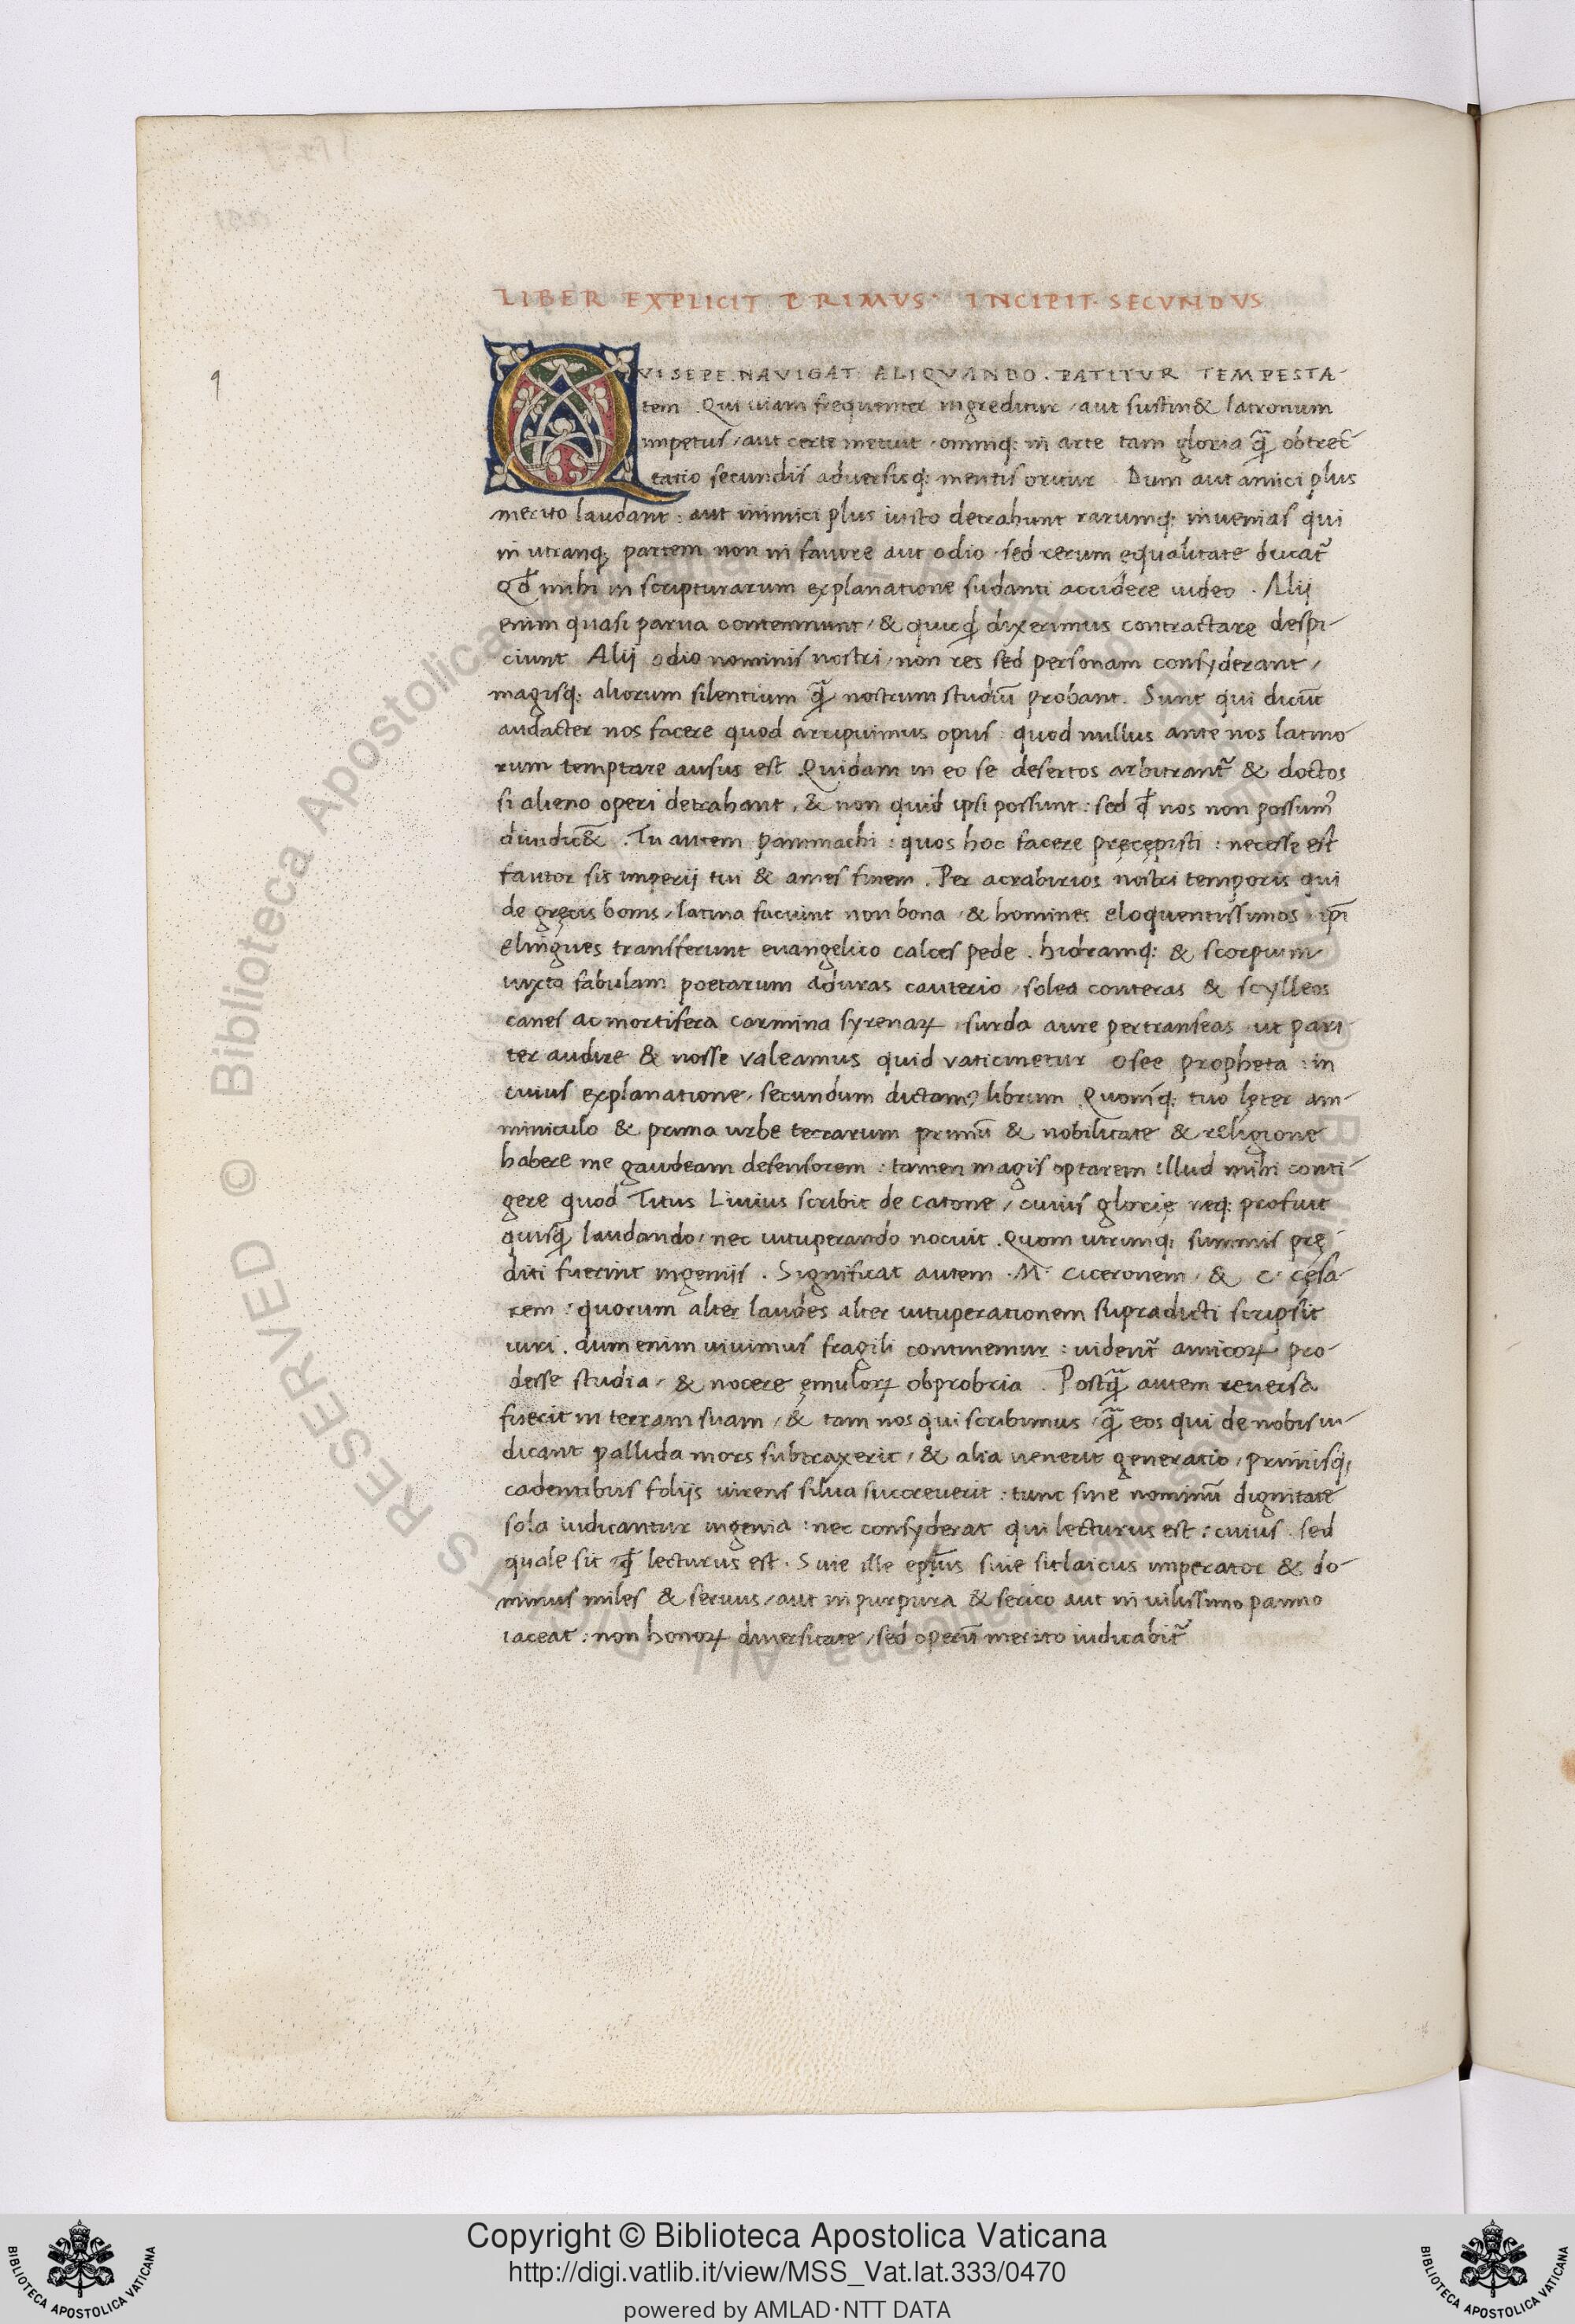 LIBER EXPLICIT PRIMVS· INCIPIT· SECVNDVS
q
QVI SEPE NAVIGAT ALIQVANDO · PATITVR TEMPESTA-
tem . Qui uiam frequenter ingreditur / aut sustin& latronum
impetus / aut certe metuit · omniq: in arte tam gloria q̃ obtrec̄-
tatio secundis aduersisq: mentis oritur . Dum aut amici plus
merito laudant : aut inimici plus iusto detrahunt rarumq: inuenias qui
in utranq; partem non in fauore aut odio · sed rerum ęqualitate ducat᷑
Qd̄ mihi in scripturarum explanatione sudanti accidere uideo · Alij
enim quasi parua contemnunt / & quicq̄d dixerimus contractare despi-
ciunt Alij odio nominis nostri / non res sed personam consyderant /
magisq: aliorum silentium q̃ nostrum studiū probant . Sunt qui dicūt
audacter nos facere quod arripuimus opus : quod nullus ante nos latino-
rum temptare ausus est . Quidam in eo se desertos arbitrant᷑ & doctos
si alieno operi detrahant , & non quid ipsi possunt : sed qđ nos non possum᷒
diiudic&̄ . Tu autem pammachi : quos hoc facere pręcępisti : necesse est
fautor sis imperij tui & ames finem . Per acrabirios nostri temporis qui
de gręcis bonis / latina faciunt non bona / & homines eloquentissimos ip̄i
elingues transferunt euangelico calces pede . hidramq: & scorpium
iuxta fabulam poetarum aduras cauterio / solea conteras & scylleos
canes ac mortifera carmina syrenaꝝ / surda aure pertranseas ut pari-
ter audire & nosse valeamus quid vaticinetur osee propheta : in
cuius explanatione / secundum dictam᷒ librum . Quomq: tuo lęter am-
miniculo & prima urbe terrarum primū & nobilitate & religione
habere me gaudeam defensorem : tamen magis optarem illud mihi conti-
gere quod Titus Liuius scribit de catone / cuius glorię neq: profuit
quisq̃ laudando / nec uituperando nocuit . Quom utrimq; summis prę-
diti fuerint ingeniis . Significat autem · M · ciceronem / & c · cęsa-
rem : quorum alter laudes alter uituperationem supradicti scripsit
uiri . dum enim uiuimus fragili continemur : uident᷑ amicoꝝ pro-
desse studia / & nocere ęmuloꝝ obprobria . Postq̃ autem reuersa
fuerit in terram suam / & tam nos qui scribimus / q̃ eos qui de nobis iu-
dicant pallida mors subtraxerit / & alia uenerit generatio / primisq;
cadentibus folijs uirens silua succreuerit : tunc sine nominū dignitate
sola iudicantur ingenia : nec consyderat qui lecturus est : cuius sed
quale sit qđ lecturus est . Siue ille ep̄us siue sit laicus imperator & do-
minus miles & seruus / aut in purpura & serico aut in uilissimo panno
iaceat : non honoꝝ diuersitate / sed operū merito iudicabit᷑
© Biblioteca Apostolica Vaticana ALL RIGHTS RESERVED
Copyright © Biblioteca Apostolica Vaticana
http://digi.vatlib.it/view/MSS_Vat.lat.333/0470
powered by AMLAD·NTT DATA
BIBLIOTECA APOSTOLICA VATICANA
BIBLIOTECA APOSTOLICA VATICANA